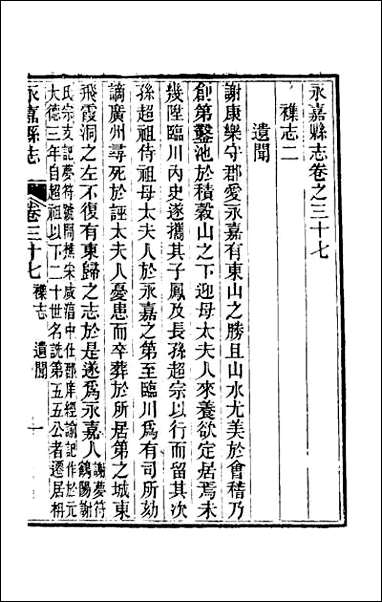 永嘉縣志卷之三十七
襍志二
遺聞
謝康樂守郡愛永嘉有東山之勝且山水尤美於會稽乃
創第鑿池於積穀山之下迎母太夫人來養欲定居焉未
幾陞臨川內史遂攜其子鳳及長孫超宗以行而留其次
孫超祖侍祖母太夫人於永嘉之第至臨川爲有司所劾
謫廣州尋死於誣太夫人憂患而卒葬於所居第之城東
飛霞洞之左不復有東歸之志於是遂爲永嘉人
謝夢符
鶴陽謝
氏宗支記夢符號閒樵宋咸淳中仕郡庠經諭記作於元
大德三年自超祖以下二十世名詵第五五公者遷居枏
永嘉縣志
卷三十七
襍志
遺聞
一